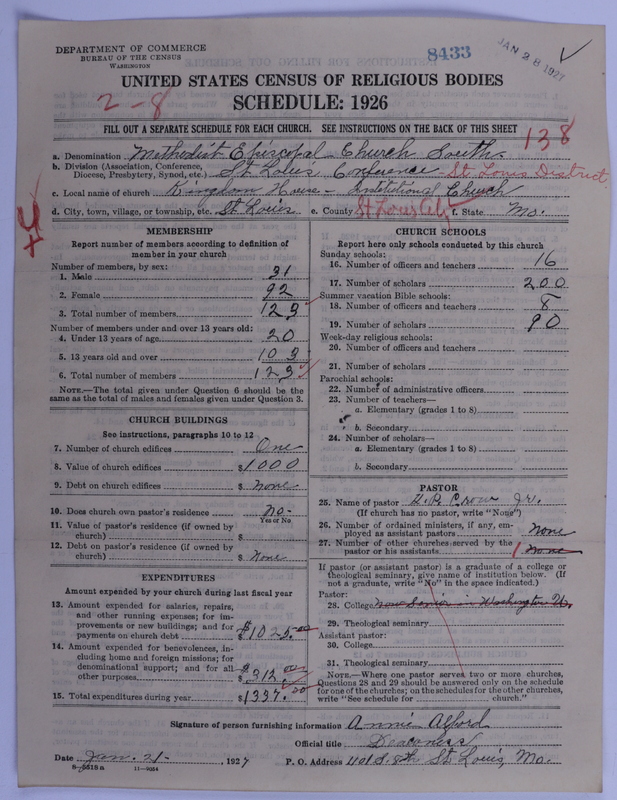 DEPARTMENT OF COMMERCE
BUREAU OF THE CENSUS
WASHINGTON
8433
JAN 28 1927
UNITED STATES CENSUS OF RELIGIOUS BODIES
2-8
SCHEDULE: 1926
FILL OUT A SEPARATE SCHEDULE FOR EACH CHURCH. SEE INSTRUCTIONS ON THE BACK OF THIS SHEET
138
a. Denomination Methodist Episcopal Church South
b. Division (Association, Conference, Diocese, Presbytery, Synod, etc.) St. Louis Conference - St Louis District.
c. Local name of church Kingdom House - Institutional Church
d. City, town, village, or township, etc. St Louis e. County St Louis City f. State Mo.
MEMBERSHIP
Report number of members according to definition of
member in your church
Number of members, by sex:
1. Male 31
2. Female 92
3. Total number of members 123
Number of members under and over 13 years old:
4. Under 13 years of age 20
5. 13 years old and over 103
6. Total number of members 123
NOTE.—The total given under Question 6 should be
same as the total of males and females given under Question 3.
CHURCH BUILDINGS
See instructions, paragraphs 10 to 12
7. Number of church edifices One
8. Value of church edifices $1000
9. Debt on church edifices $ None
10. Does church own pastor's residence? no-
Yes or No
11. Value of pastor's residence (if owned by
church) $
12. Debt on pastor's residence (if owned by
church) $ None
EXPENDITURES
Amount expended by your church during last fiscal year
13. Amount expended for salaries, repairs,
and other running expenses; for im-
provements or new buildings; and for
payments on church debt $1025.00
14. Amount expended for benevolences, in-
cluding home and foreign missions; for
denominational support; and for all
other purposes $312.00
15. Total expenditures during year $1337.00
CHURCH SCHOOLS
Report here only schools conducted by this church
Sunday schools:
16. Number of officers and teachers 16
17. Number of scholars 200
Summer vacation Bible schools:
18. Number of officers and teachers 8
19. Number of scholars 90
Week-day religious schools:
20. Number of officers and teachers
21. Number of scholars
Parochial schools:
22. Number of administrative officers
23. Number of teachers—
a. Elementary (grades 1 to 8)
b. Secondary
24. Number of scholars—
a. Elementary (grades 1 to 8)
b. Secondary
PASTOR
25. Name of pastor D.R. Crow Jr.
(If church has no pastor, write "None")
26. Number of ordained ministers, if any, em-
ployed as assistant pastors None
27. Number of other churches served by the
pastor or his assistants 1 None
If pastor (or assistant pastor) is a graduate of a college or
theological seminary, give name of institution below. (If
not a graduate, write "No" in the space indicated.)
Pastor:
28. College Now Senior in Washington U.
29. Theological seminary
Assistant pastor:
30. College
31. Theological seminary
NOTE.—Where one pastor serves two or more churches,
Questions 28 and 29 should be answered only on the schedule
for one of the churches; on the schedules for the other churches,
write "See schedule for church."
Signature of person furnishing information Annie Alford
Official title Deaconess
Date Jan. 21- 1927 P. O. Address 1101 S. 8th St Louis, Mo.
11-9084